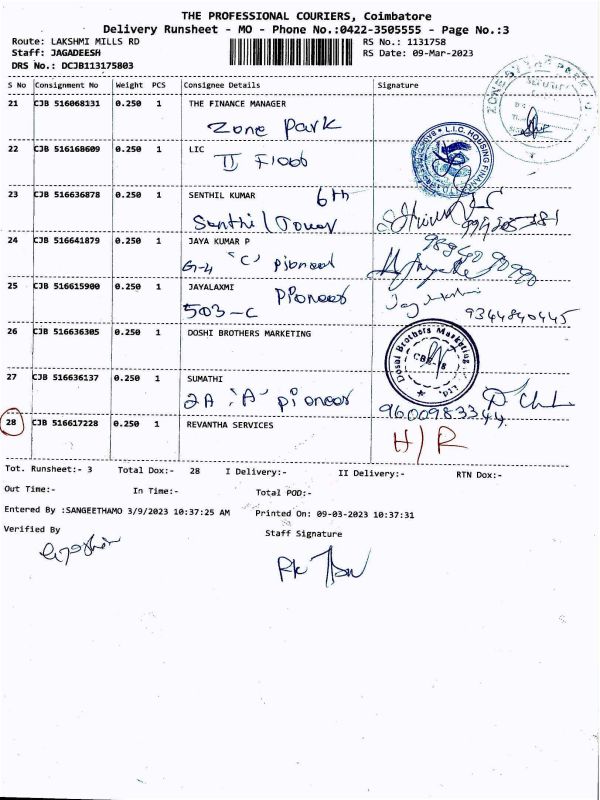 THE PROFESSIONAL COURIERS, Coimbatore
Delivery Runsheet - MO - Phone No.:0422-3505555 - Page No.:3
Route: LAKSHMI MILLS RD RS No.: 1131758
Staff: JAGADEESH RS Date: 09-Mar-2023
DRS No.: DCJB113175803
S No Consignment No Weight PCS Consignee Details Signature
21 CJB 516068131 0.250 1 THE FINANCE MANAGER
Zone Park
22 CJB 516168609 0.250 1 LIC
II Floor
23 CJB 516636878 0.250 1 SENTHIL KUMAR 6th
Senthil Tower
24 CJB 516641879 0.250 1 JAYA KUMAR P
G-4 'C' Pioneer
25 CJB 516615900 0.250 1 JAYALAXMI Pioneer
503-C 9344840445
26 CJB 516636305 0.250 1 DOSHI BROTHERS MARKETING
Doshi Brothers Marketing Ltd.
CBE-18
27 CJB 516636137 0.250 1 SUMATHI
2A 'A' pioneer 9600983344
28 CJB 516617228 0.250 1 REVANTHA SERVICES H/R
Tot. Runsheet:- 3 Total Dox:- 28 I Delivery:- II Delivery:- RTN Dox:-
Out Time:- In Time:- Total POD:-
Entered By :SANGEETHAMO 3/9/2023 10:37:25 AM Printed On: 09-03-2023 10:37:31
Verified By Staff Signature